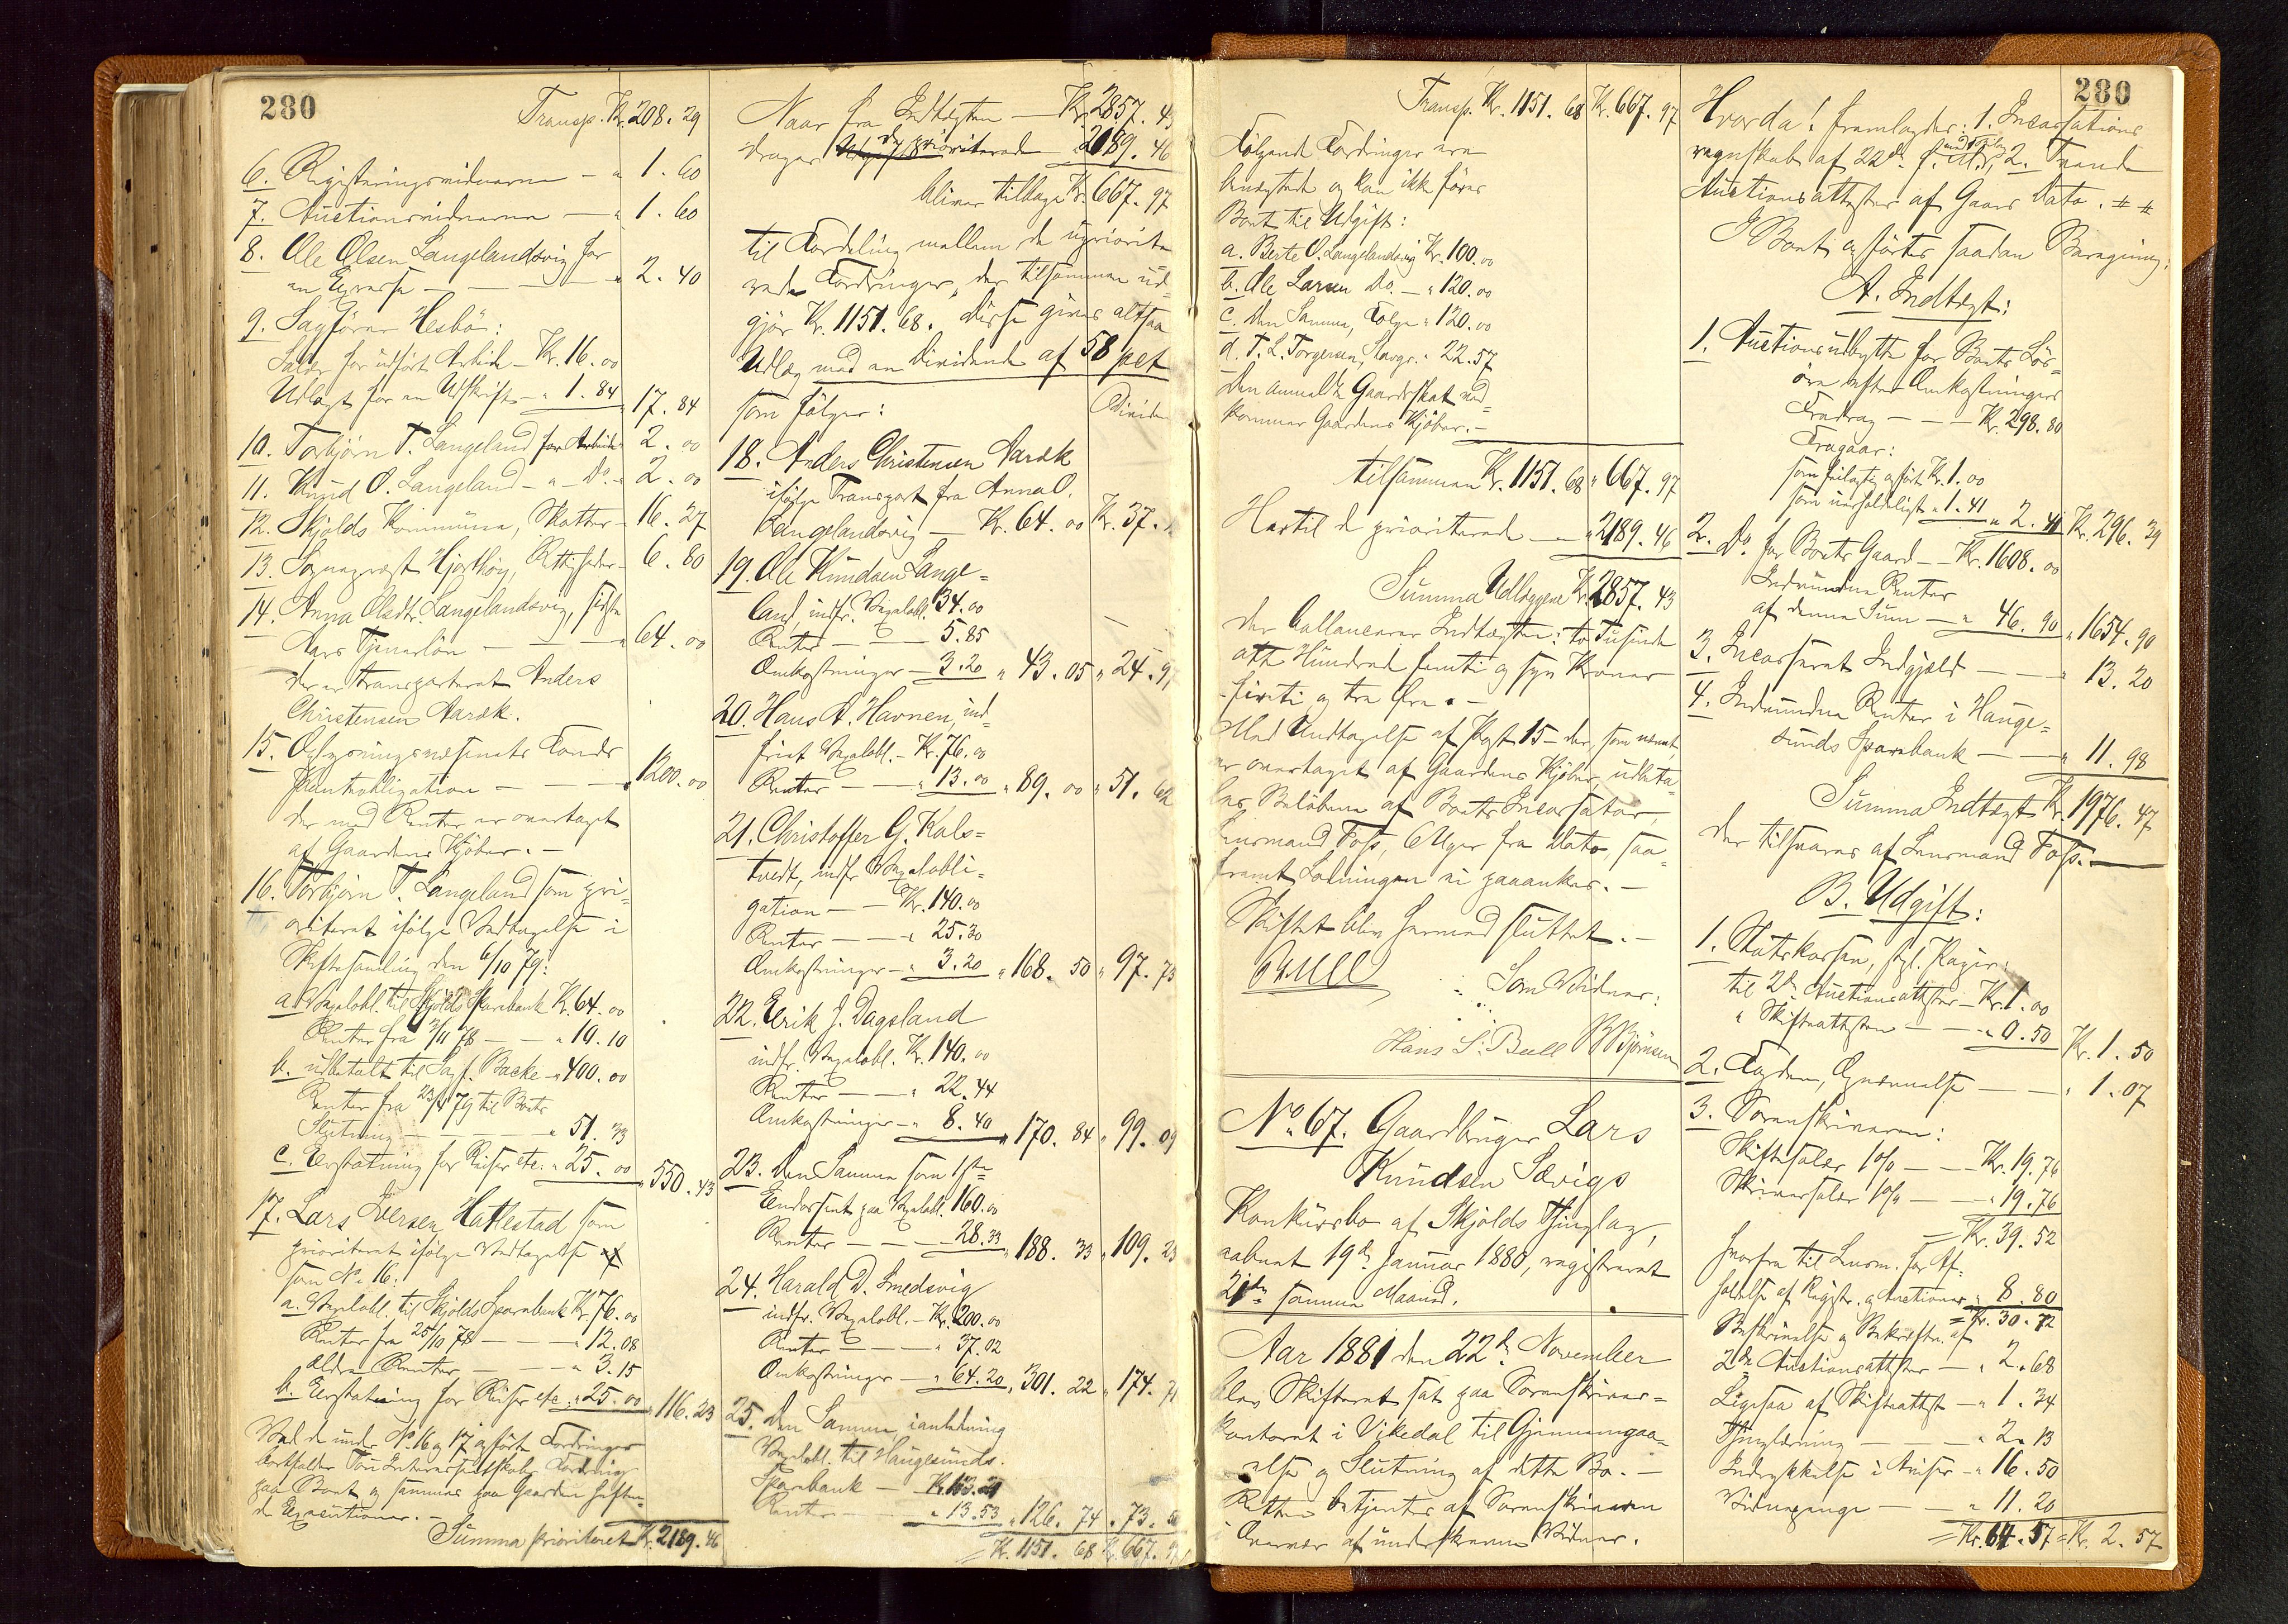 280
Transp. Kr. 208.29
6. Registreringsvidnerne — " 1.60
7. Auctionsvidnerne — " 1.60
8. Ole Olsen Langelandsvig for
en Expresse — — — " 2.40
9. Sagfører Hesbö:
Salær for udført Arbeide — Kr. 16.00
Udlagt for en Udskrift — " 1.84 " 17.84
10. Torbjörn T. Langeland for Arbeide " 2.00
11. Knud O. Langeland — " — Do. — " 2.00
12. Skjolds Kommune, Skatter — 16.27
13. Sogneprest Hjorthöy, Rettigheder — 6.80
14. Anna Olsdtr. Langelandsvig, sidste
Aars Tjenerløn — — — " 64.00
der er transporteret Anders
Christensen Aarek.
15. Oplysningsvesenets Fonds
Panteobligation — — — " 1200.00
der med Renter er overtaget
af Gaardens Kjøber. —
16. Torbjörn T. Langeland som pri-
oriteret ifølge Vedtagelse i
Skiftesamling den 6/10 79:
a. Vexelobl. til Skjolds Sparebank Kr. 64.00
Renter fra 2/11 78 — — " 10.10
b. udbetalt til Sagf. Backe — " 400.00
Renter fra 23/4 79 til Boets
Slutning — — — " 51.33
c. Erstatning for Reiser etc. " 25.00 " 550.43
17. Lars Iversen Hattestad som
prioriteret ifølge Vedtagelse
som No. 16:
a. Vexelobl. til Skjolds Sparebank Kr. 76.00
Renter fra 25/10 78 — — " 12.08
ældre Renter — — " 3.15
b. Erstatning for Reiser etc. " 25.00 " 116.23
Ved de under No. 16 og 17 opførte Fordringer
bortfalder Fordring
paa Boet og sammes paa Gaarden heften-
de Executioner. —
Summa prioriteret Kr. 2189.46
Naar fra Indtægten — Kr. 2857.43
drages de prioriterede " 2189.46
bliver tilbage Kr. 667.97
til Fordeling mellem de upriorite-
rede Fordringer, der tilsammen ud-
gjør Kr. 1151.68. Disse gives altsaa
Udlæg med en Dividende af 58 pct
som følger:
18. Anders Christensen Aarek
ifølge Transport fra Anna O.
Langelandsvig — Kr. 64.00 Kr. 37.
19. Ole Knudsen Lange-
land, indfr. Vexelobl. 34.00
Renter — — 5.85
Omkostninger — 3.20 " 43.05 " 24.97
20. Hans A. Havnen, ind-
friet Vexelobl. — Kr. 76.00
Renter — — " 13.00 " 89.00 " 51.62
21. Christoffer G. Kals-
tvedt, indfr. Vexelobli-
gation — — Kr. 140.00
Renter — — " 25.30
Omkostninger — " 3.20 " 168.50 " 97.73
22. Erik J. Dagsland
indfr. Vexelobl. Kr. 140.00
Renter — — " 22.44
Omkostninger — " 8.40 " 170.84 " 99.09
23. Den Samme som 1ste
Endossent paa Vexelobl. 160.00
Renter — — 28.33 " 188.33 " 109.23
24. Harald D. Smedsvig
indfr. Vexelobl. — Kr. 200.00
Renter — — " 37.02
Omkostninger — " 64.20 " 301.22 " 174.71
25. Den Samme i anledning
Vexelobl. til Haugesunds
Sparebank — Kr. 113.21
Renter — " 13.53 " 126.74 " 73.
= Kr. 1151.68 Kr. 667.97
Transp. Kr. 1151.68 Kr. 667.97
Følgende Fordringer ere
benegtede og kan ikke føres
Boet til Udgift:
a. Berte O. Langelandsvig Kr. 100.00
b. Ole Larsen Do. — " 120.00
c. Den Samme, Følge " 120.00
d. T. L. Torgersen, Stavgr. " 22.57
Den anmeldte Gaardsskat ved-
kommer Gaardens Kjøber. —
tilsammen Kr. 1151.68 " 667.97
Hertil de prioriterede — " 2189.46
Summa Udlæggene Kr. 2857.43
der ballancerer Indtægten: to Tusinde
otte Hundrede femti og syv Kroner
firti og tre Øre. —
Med Undtagelse af Post 15 — der, som nævnt,
er overtaget af Gaardens Kjøber, udbeta-
les Beløbene af Boets Incassator,
Lensmand Foss, 6 Uger fra Dato, saa-
fremt Lodningen ei paaankes. —
Skiftet blev hermed sluttet. —
Bull
Som Vidner:
Hans S. Bull B Björnsen
No. 67. Gaardbruger Lars
Knudsen Sævigs
Konkursbo af Skjolds Thinglag,
aabnet 19de Januar 1880, registreret
21de samme Maaned.
Aar 1881 den 22de November
blev Skifteret sat paa Sorenskriver-
kontoret i Vikedal til Gjennemgaa-
else og Slutning af dette Bo. —
Retten betjentes af Sorenskriveren
i Overvær af underskrevne Vidner.
280
Hvorda: fremlagdes: 1. Incassations
regnskab af 22de f. M. med Bilag, 2. Tvende
Auctionsattester af Gaars Dato. # #
I Boet opførtes saadan Beregning:
A. Indtægt:
1. Auctionsudbytte for Boets Løs-
øre efter Omkostningers
Fradrag — — Kr. 298.80
Fragaar:
som feilagtig opført Kr. 1.00
som uerholdeligt " 1.41 " 2.41 Kr. 296.39
2. Do. for Boets Gaard — Kr. 1608.00
Indvundne Renter
af denne Sum — " 46.90 " 1654.90
3. Incasseret Indgjæld — — " 13.20
4. Indvundne Renter i Hauge-
sunds Sparebank — — " 11.98
Summa Indtægt Kr. 1976.47
der tilsvares af Lensmand Foss. —
B. Udgift:
1. Statskassen, stpl. Papir:
til 2de Auctionsattester — Kr. 1.00
" Skifteattesten — — " 0.50 Kr. 1.50
2. Fogden, Opnævnelse — — " 1.07
3. Sorenskriveren:
Skiftesalær 1% — — Kr. 19.76
Skriversalær 1% — — " 19.76
= Kr. 39.52
herfra til Lensm. for Af-
holdelse af Registr. og Auctioner " 8.80
= Kr. 30.72
Beskrivelse og Bekræftn. af
2de Auctionsattester — " 2.68
Ligesaa af Skifteattest — " 1.34
Thinglæsning — — " 2.13
Indrykkelse i Aviser — " 16.50
Vidnepenge — " 11.20
= Kr. 64.57 = Kr. 2.57